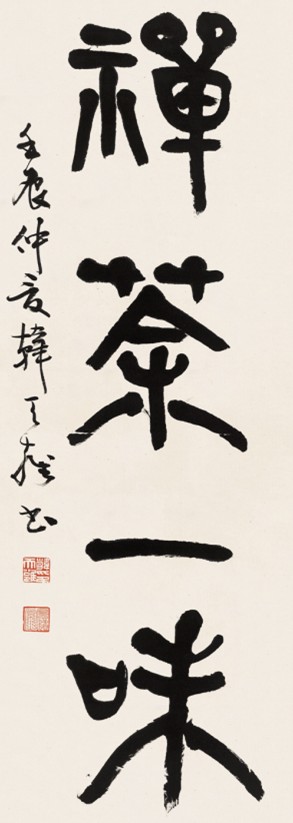 禪茶一味
壬辰仲夏韓天雍書